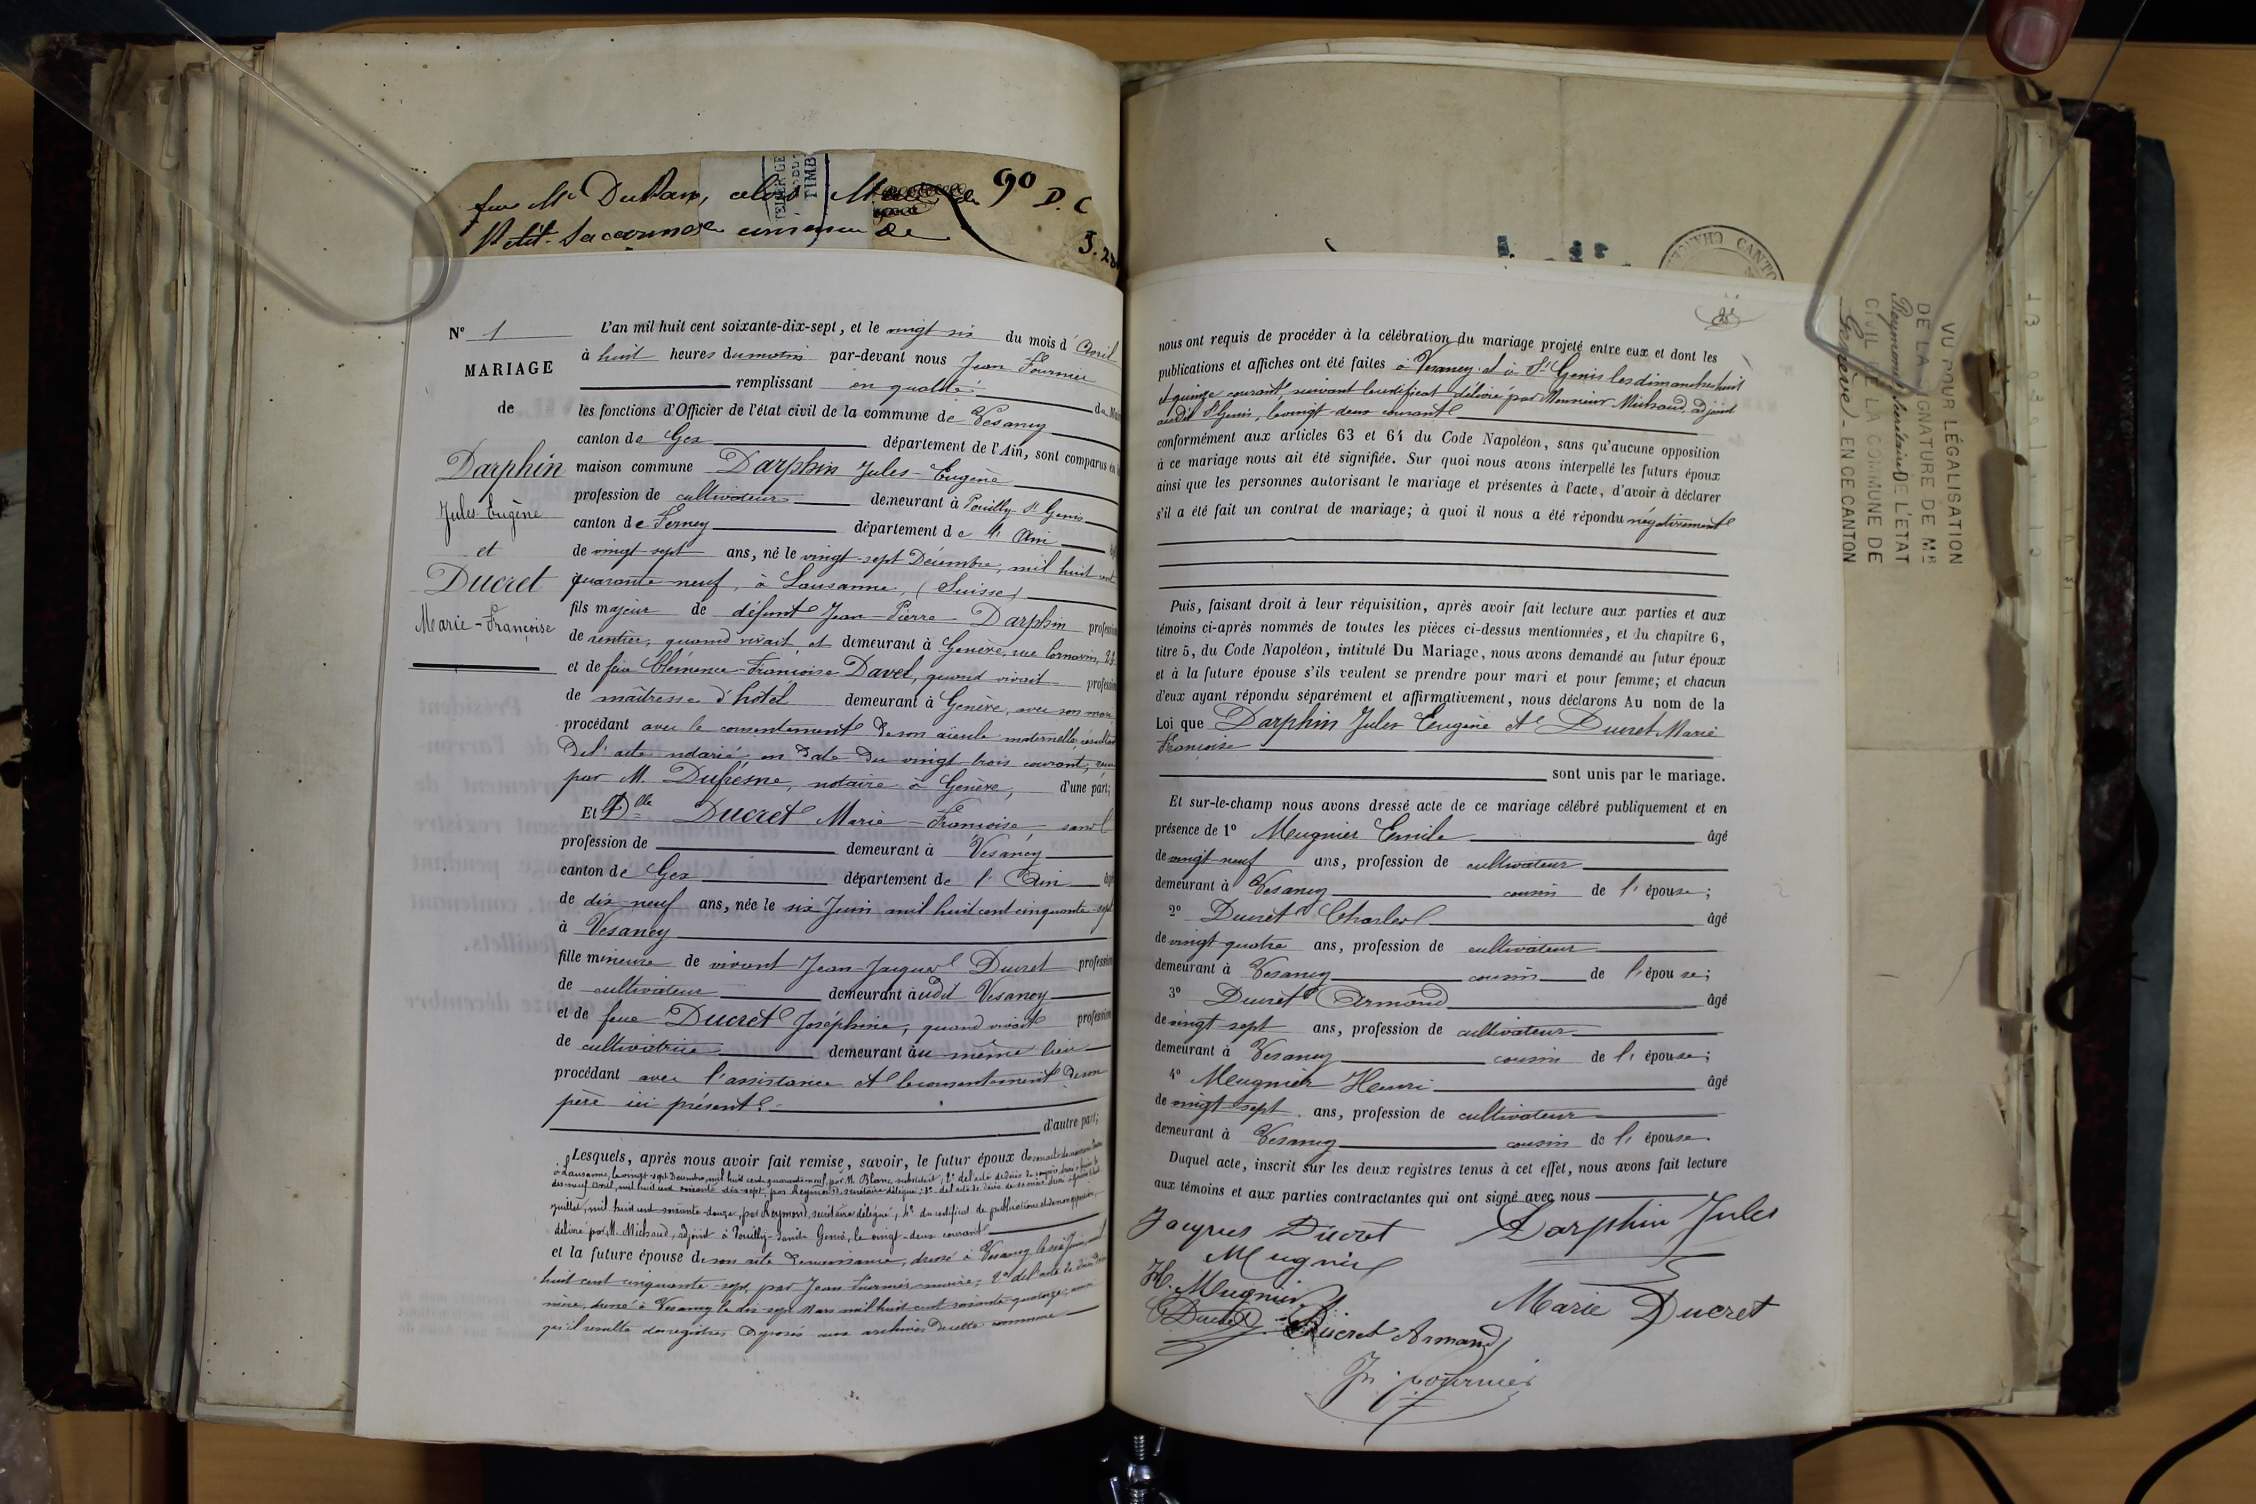 feu Mr
90 D. C
Petit-Saconnex
TIMB
Nº 1
MARIAGE
de
Darphin
Jules-Eugène
et
Ducret
Marie-Françoise
L'an mil huit cent soixante-dix-sept, et le vingt six du mois d'Avril
à huit heures du matin par-devant nous Jean Fournier
remplissant en qualité de Mai
les fonctions d'Officier de l'état civil de la commune de Vesancy
canton de Gex département de l'Ain, sont comparus en la
maison commune Darphin Jules-Eugène
profession de cultivateur demeurant à Pouilly-St Genis
canton de Ferney département de l'Ain âgé
de vingt-sept ans, né le vingt-sept Décembre, mil huit cent
quarante neuf, à Lausanne, (Suisse)
fils majeur de défunt Jean-Pierre Darphin profession
de rentier, quand vivait, et demeurant à Genève, rue Cornavin, 24
et de feue Clémence-Françoise Davel, quand vivait profession
de maîtresse d'hôtel demeurant à Genève, avec son mari
procédant avec le consentement de son aïeule maternelle, résultant
de l'acte notarié en date du vingt trois courant, reçu
par M. Dufresne, notaire à Genève, d'une part;
Et Dlle Ducret Marie-Françoise sans
profession de demeurant à Vesancy
canton de Gex département de l'Ain âgée
de dix neuf ans, née le six Juin mil huit cent cinquante-sept
à Vesancy
fille mineure de vivant Jean-Jacques Ducret profession
de cultivateur demeurant audit Vesancy
et de feue Ducret Joséphine, quand vivait profession
de cultivatrice demeurant au même lieu
procédant avec l'assistance et le consentement de son
père ici présent.
d'autre part;
Lesquels, après nous avoir fait remise, savoir, le futur époux de son acte de naissance
à Lausanne, le vingt-sept Décembre, mil huit cent quarante-neuf, par M. Blanc, substitut; 2º de l'acte de décès de son père, dressé à Genève le
dix neuf Avril, mil huit cent soixante dix-sept, par Reymond, secrétaire délégué; 3º de l'acte de décès de sa mère, dressé à Genève le huit
juillet, mil huit cent soixante-douze, par Reymond, secrétaire délégué; 4º du certificat de publications et de non opposition,
délivré par M. Michaud, adjoint à Pouilly-Saint-Genis, le vingt-deux courant
et la future épouse de son acte de naissance, dressé à Vesancy le six Juin, mil
huit cent cinquante-sept, par Jean Fournier maire; 2º de l'acte de décès de sa
mère, dressé à Vesancy le dix sept Mars mil huit cent soixante quatorze, ainsi
qu'il résulte des registres déposés aux archives de cette commune
nous ont requis de procéder à la célébration du mariage projeté entre eux et dont les
publications et affiches ont été faites à Vesancy et à St Genis les dimanches huit
et quinze courant, suivant le certificat délivré par Monsieur Michaud, adjoint
audit St Genis, le vingt-deux courant
conformément aux articles 63 et 64 du Code Napoléon, sans qu'aucune opposition
à ce mariage nous ait été signifiée. Sur quoi nous avons interpellé les futurs époux
ainsi que les personnes autorisant le mariage et présentes à l'acte, d'avoir à déclarer
s'il a été fait un contrat de mariage; à quoi il nous a été répondu négativement
Puis, faisant droit à leur réquisition, après avoir fait lecture aux parties et aux
témoins ci-après nommés de toutes les pièces ci-dessus mentionnées, et du chapitre 6,
titre 5, du Code Napoléon, intitulé Du Mariage, nous avons demandé au futur époux
et à la future épouse s'ils veulent se prendre pour mari et pour femme; et chacun
d'eux ayant répondu séparément et affirmativement, nous déclarons Au nom de la
Loi que Darphin Jules Eugène et Ducret Marie
Françoise
sont unis par le mariage.
Et sur-le-champ nous avons dressé acte de ce mariage célébré publiquement et en
présence de 1º Meugnier Emile âgé
de vingt neuf ans, profession de cultivateur
demeurant à Vesancy cousin de l'épouse;
2º Ducret Charles âgé
de vingt quatre ans, profession de cultivateur
demeurant à Vesancy cousin de l'épouse;
3º Ducret Armand âgé
de vingt sept ans, profession de cultivateur
demeurant à Vesancy cousin de l'épouse;
4º Meugnier Henri âgé
de vingt-sept ans, profession de cultivateur
demeurant à Vesancy cousin de l'épouse.
Duquel acte, inscrit sur les deux registres tenus à cet effet, nous avons fait lecture
aux témoins et aux parties contractantes qui ont signé avec nous
Jacques Ducret Darphin Jules
Meugnier
H. Meugnier
Marie Ducret
Ducret Ducret Armand
Jn. Fournier
VU POUR LÉGALISATION
DE LA SIGNATURE DE MR
Reymond Secrétaire DE L'ETAT
CIVIL DE LA COMMUNE DE
Genève - EN CE CANTON